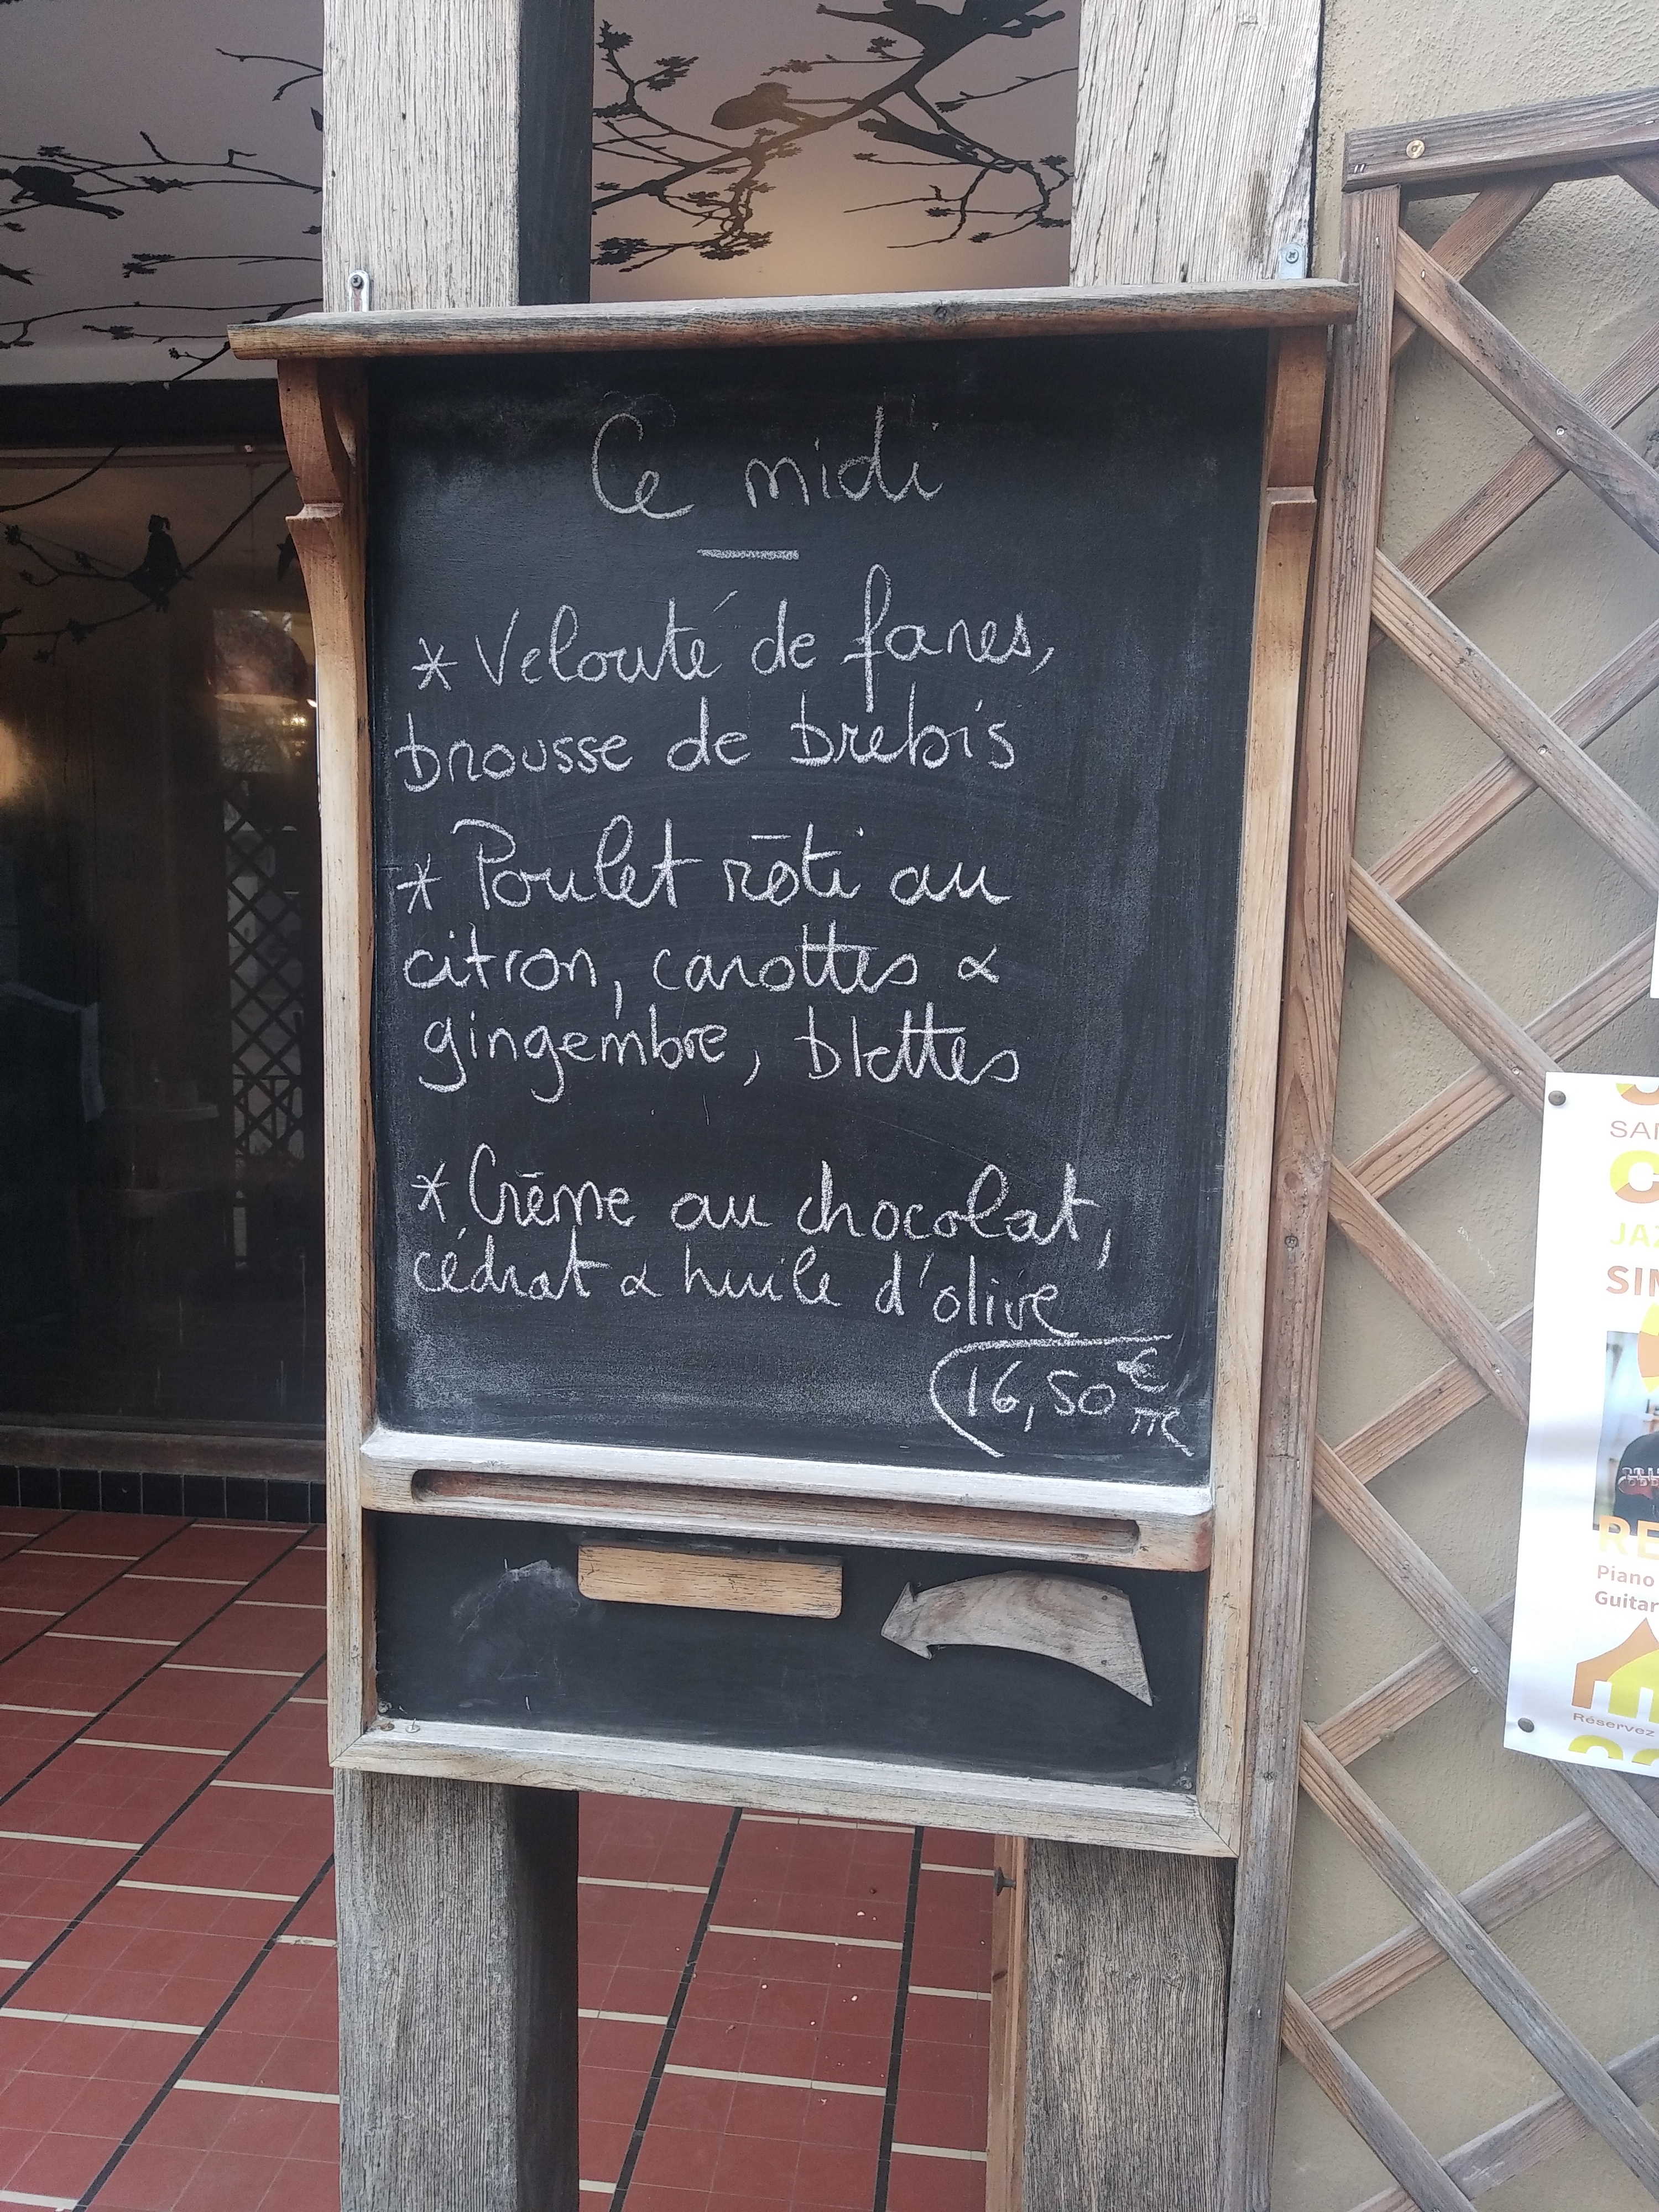 Ce midi
* Velouté de fanes,
brousse de brebis
* Poulet rôti au
citron, carottes &
gingembre, blettes
* Crème au chocolat,
cédrat & huile d'olive
16,50 €
TTC
JAZ
Piano
Guitar
Réservez